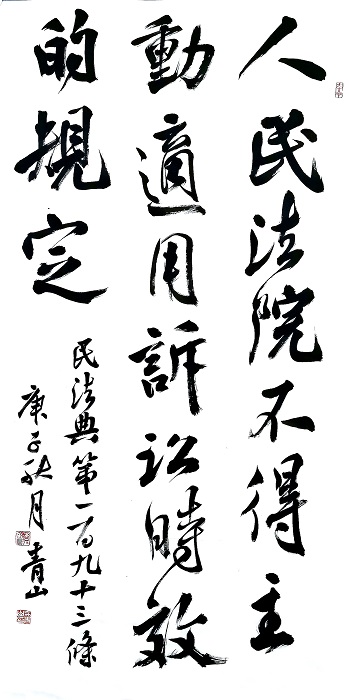 人民法院不得主
動適用訴訟時效
的規定
民法典第一百九十三條
庚子秋月青山